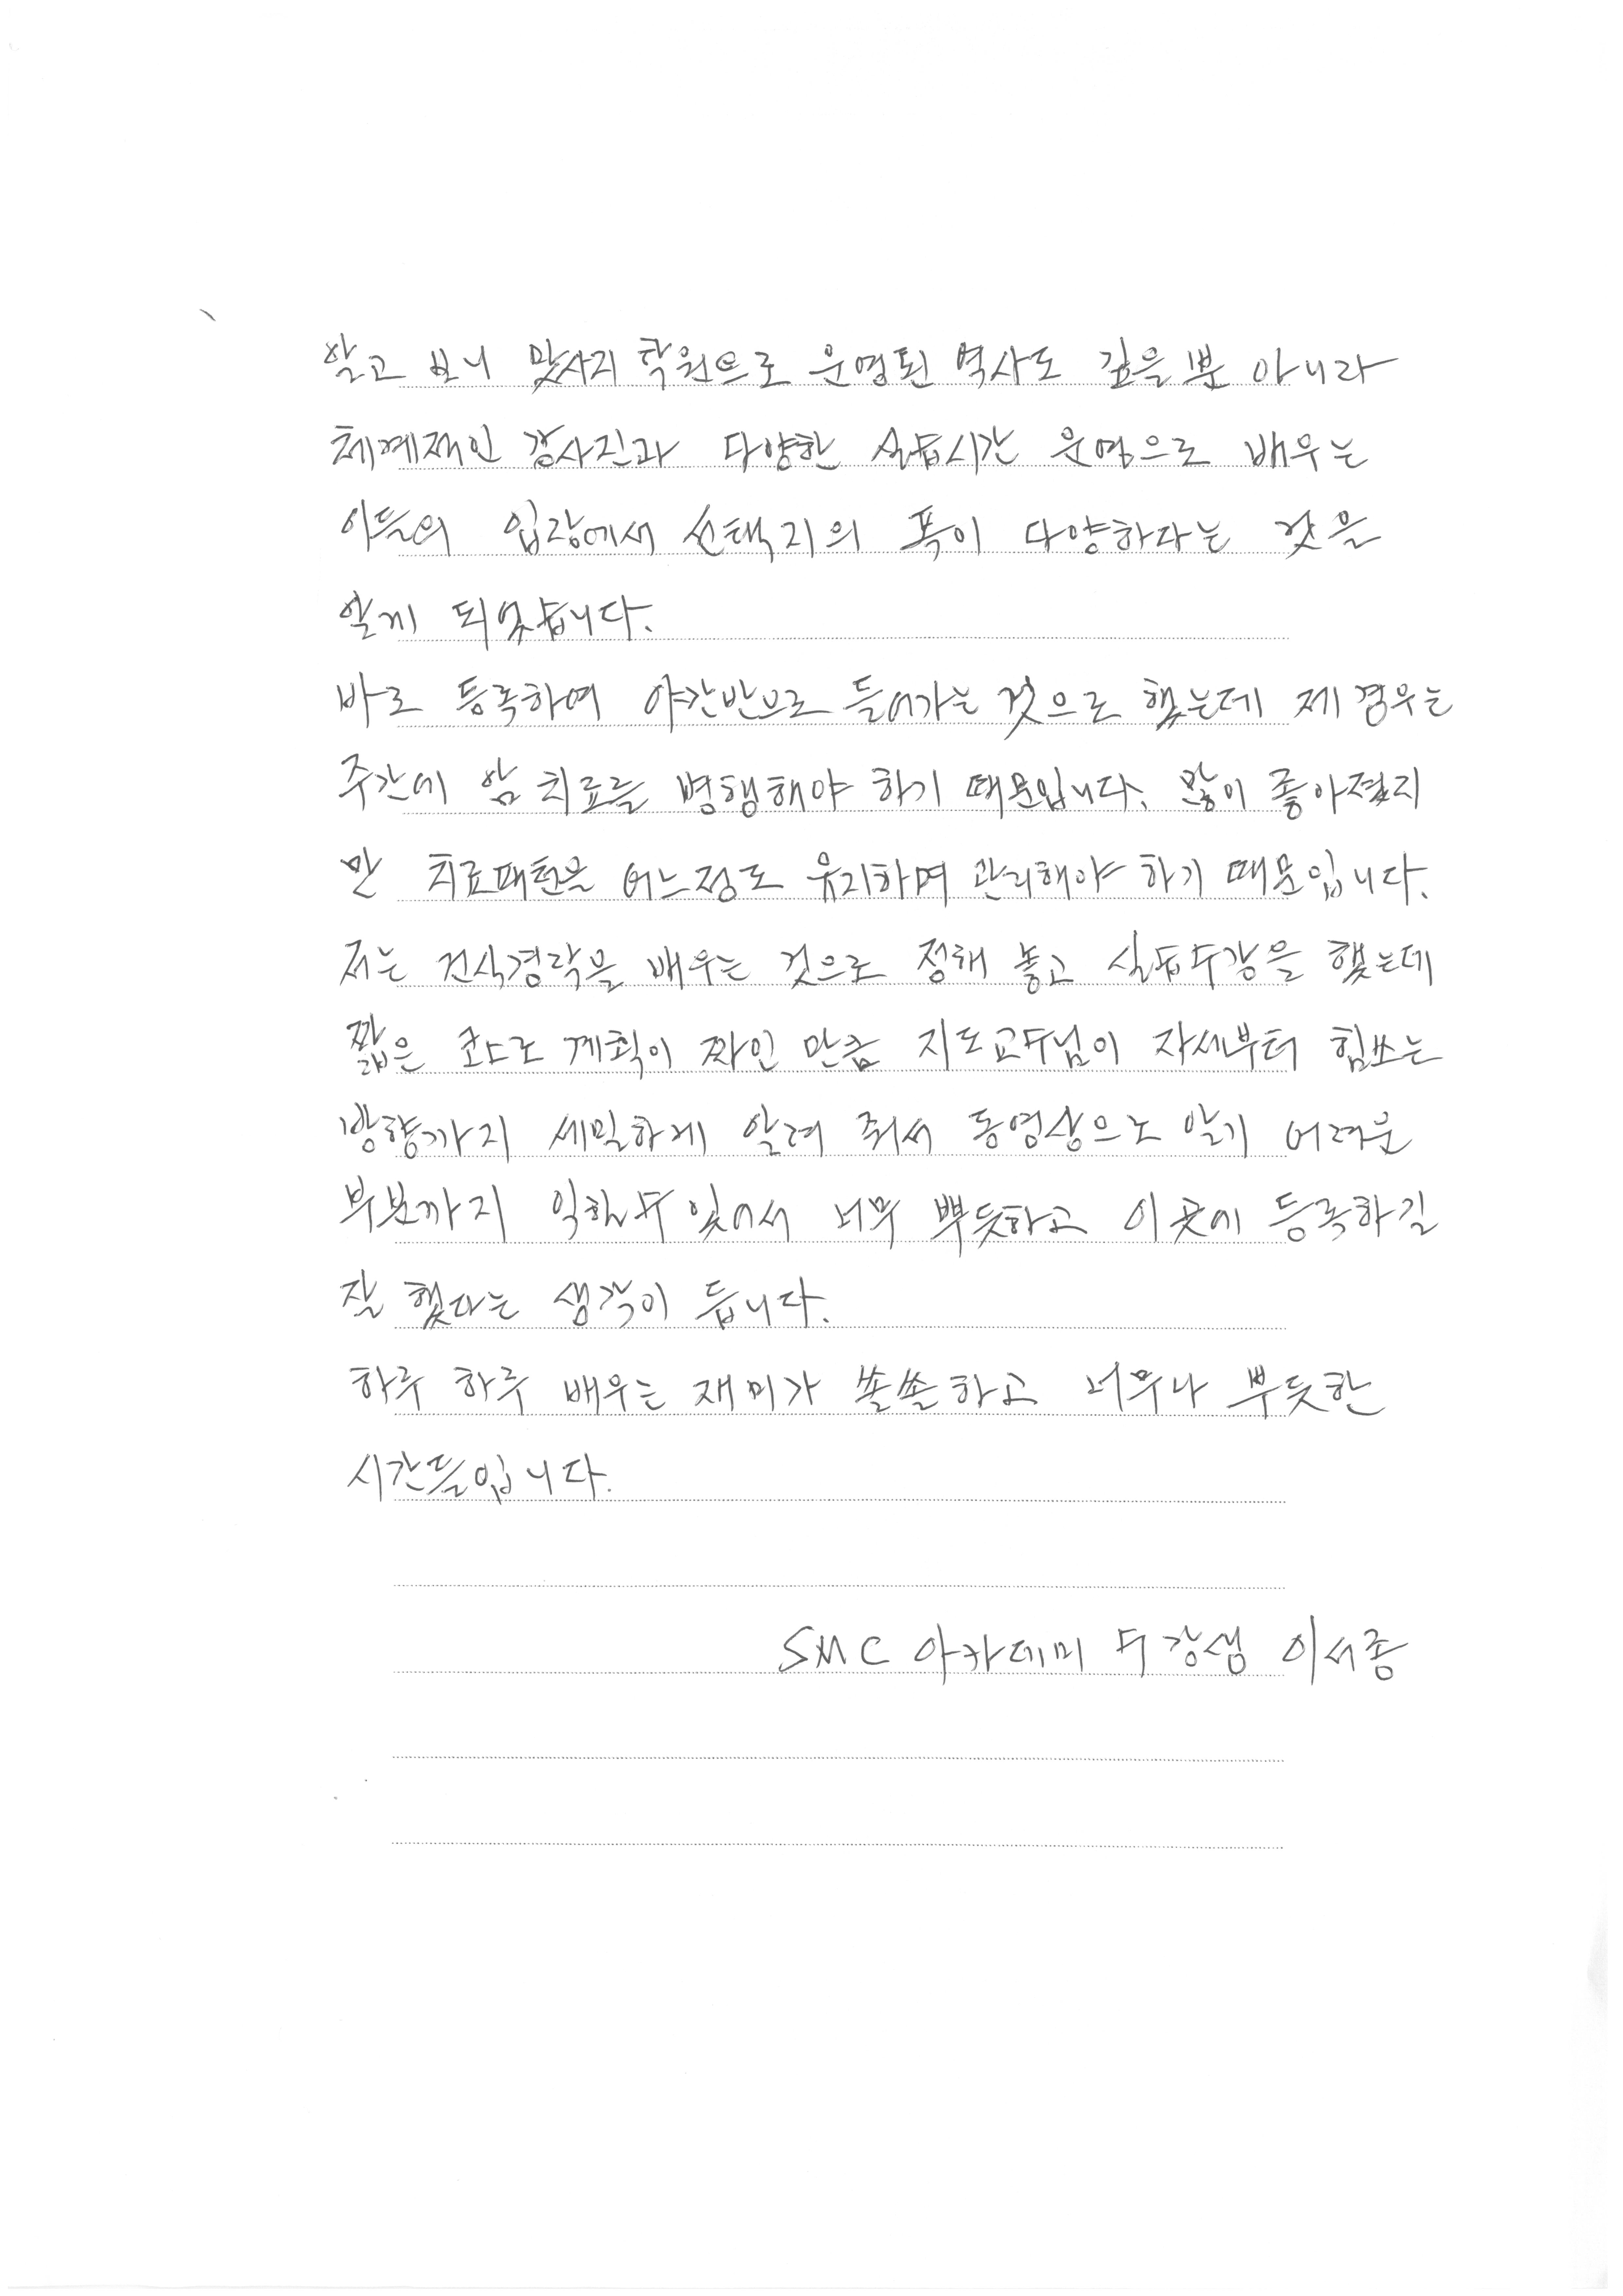 알고 보니 맛사지 학원으로 운영된 역사도 깊을 뿐 아니라
체계적인 강사진과 다양한 실습시간 운영으로 배우는
이들의 입장에서 선택지의 폭이 다양하다는 것을
알게 되었습니다.
바로 등록하여 야간반으로 들어가는 것으로 했는데 제 경우는
주간에 암 치료를 병행해야 하기 때문입니다. 많이 좋아졌지
만 치료패턴을 어느정도 유지하며 관리해야 하기 때문입니다.
저는 건식경락을 배우는 것으로 정해 놓고 실습수강을 했는데
짧은 코스로 계획이 짜인 만큼 지도교수님이 자세부터 힘쓰는
방향까지 세밀하게 알려 줘서 동영상으로 알기 어려운
부분까지 익힐수 있어서 너무 뿌듯하고 이 곳에 등록하길
잘 했다는 생각이 듭니다.
하루 하루 배우는 재미가 쏠쏠하고 너무나 뿌듯한
시간들입니다.
SMC 아카데미 수강생 이서종